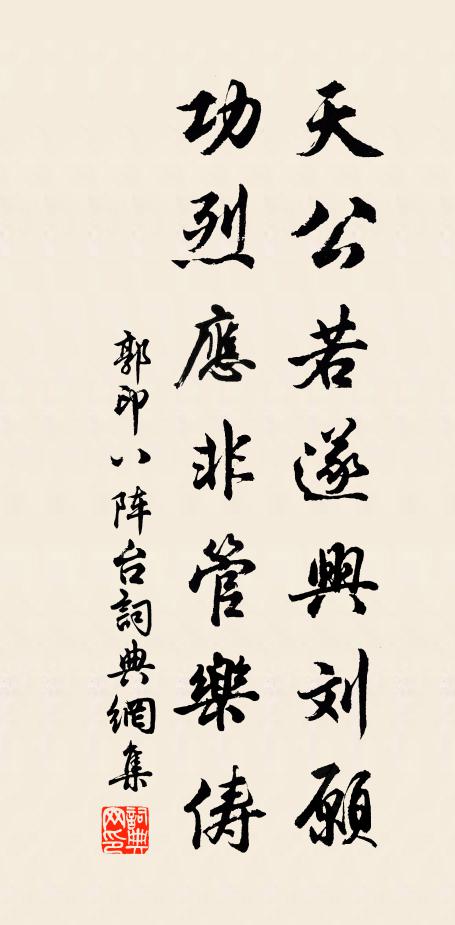 天公若遂興刘願
功烈應非管樂儔
郭印八阵台詞典網集
詞典網印